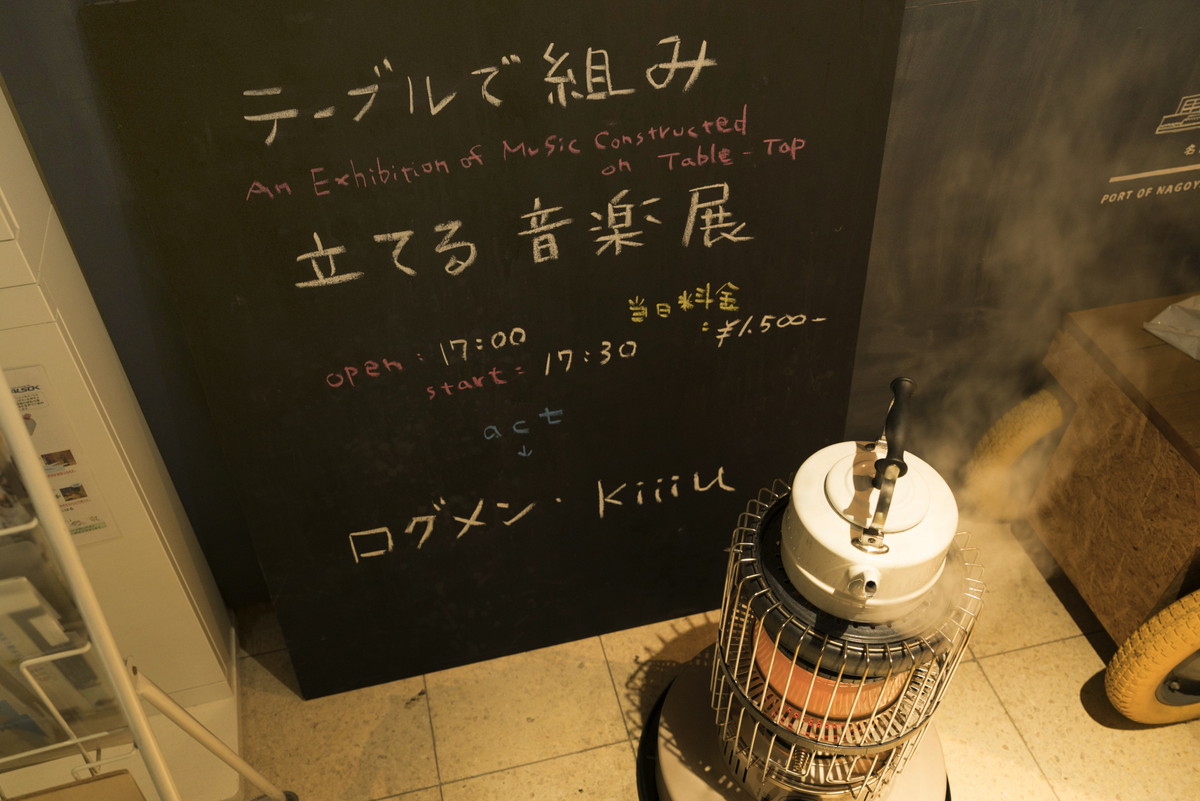 テーブルで組み
An Exhibition of Music Constructed
on Table-Top
立てる 音楽 展
当日料金
: ¥1.500-
open : 17:00
start : 17:30
act
↓
ログメン · Kiiiu
名
PORT OF NAGOY
ALSOK